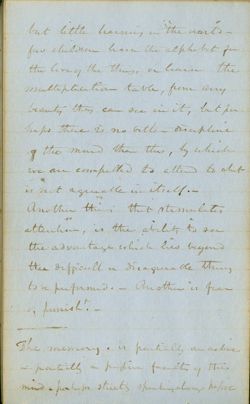 but little learning in the world -
few children learn the alphabet for
the love of the thing, or learn the
multiplication table, from any
beauty they can see in it, but per
haps there is no better discipline
of the mind than this, by which
we are compelled to attend to what
is not agreeable in itself. -
Another thing that stimulates
attention, is the ability to see
the advantage which lies beyond
the difficult or disagreeable thing
to be performed. - Another is fear
of punisht. -
The memory is partially an active
& partially a passive faculty of the
mind - perhaps strictly speaking